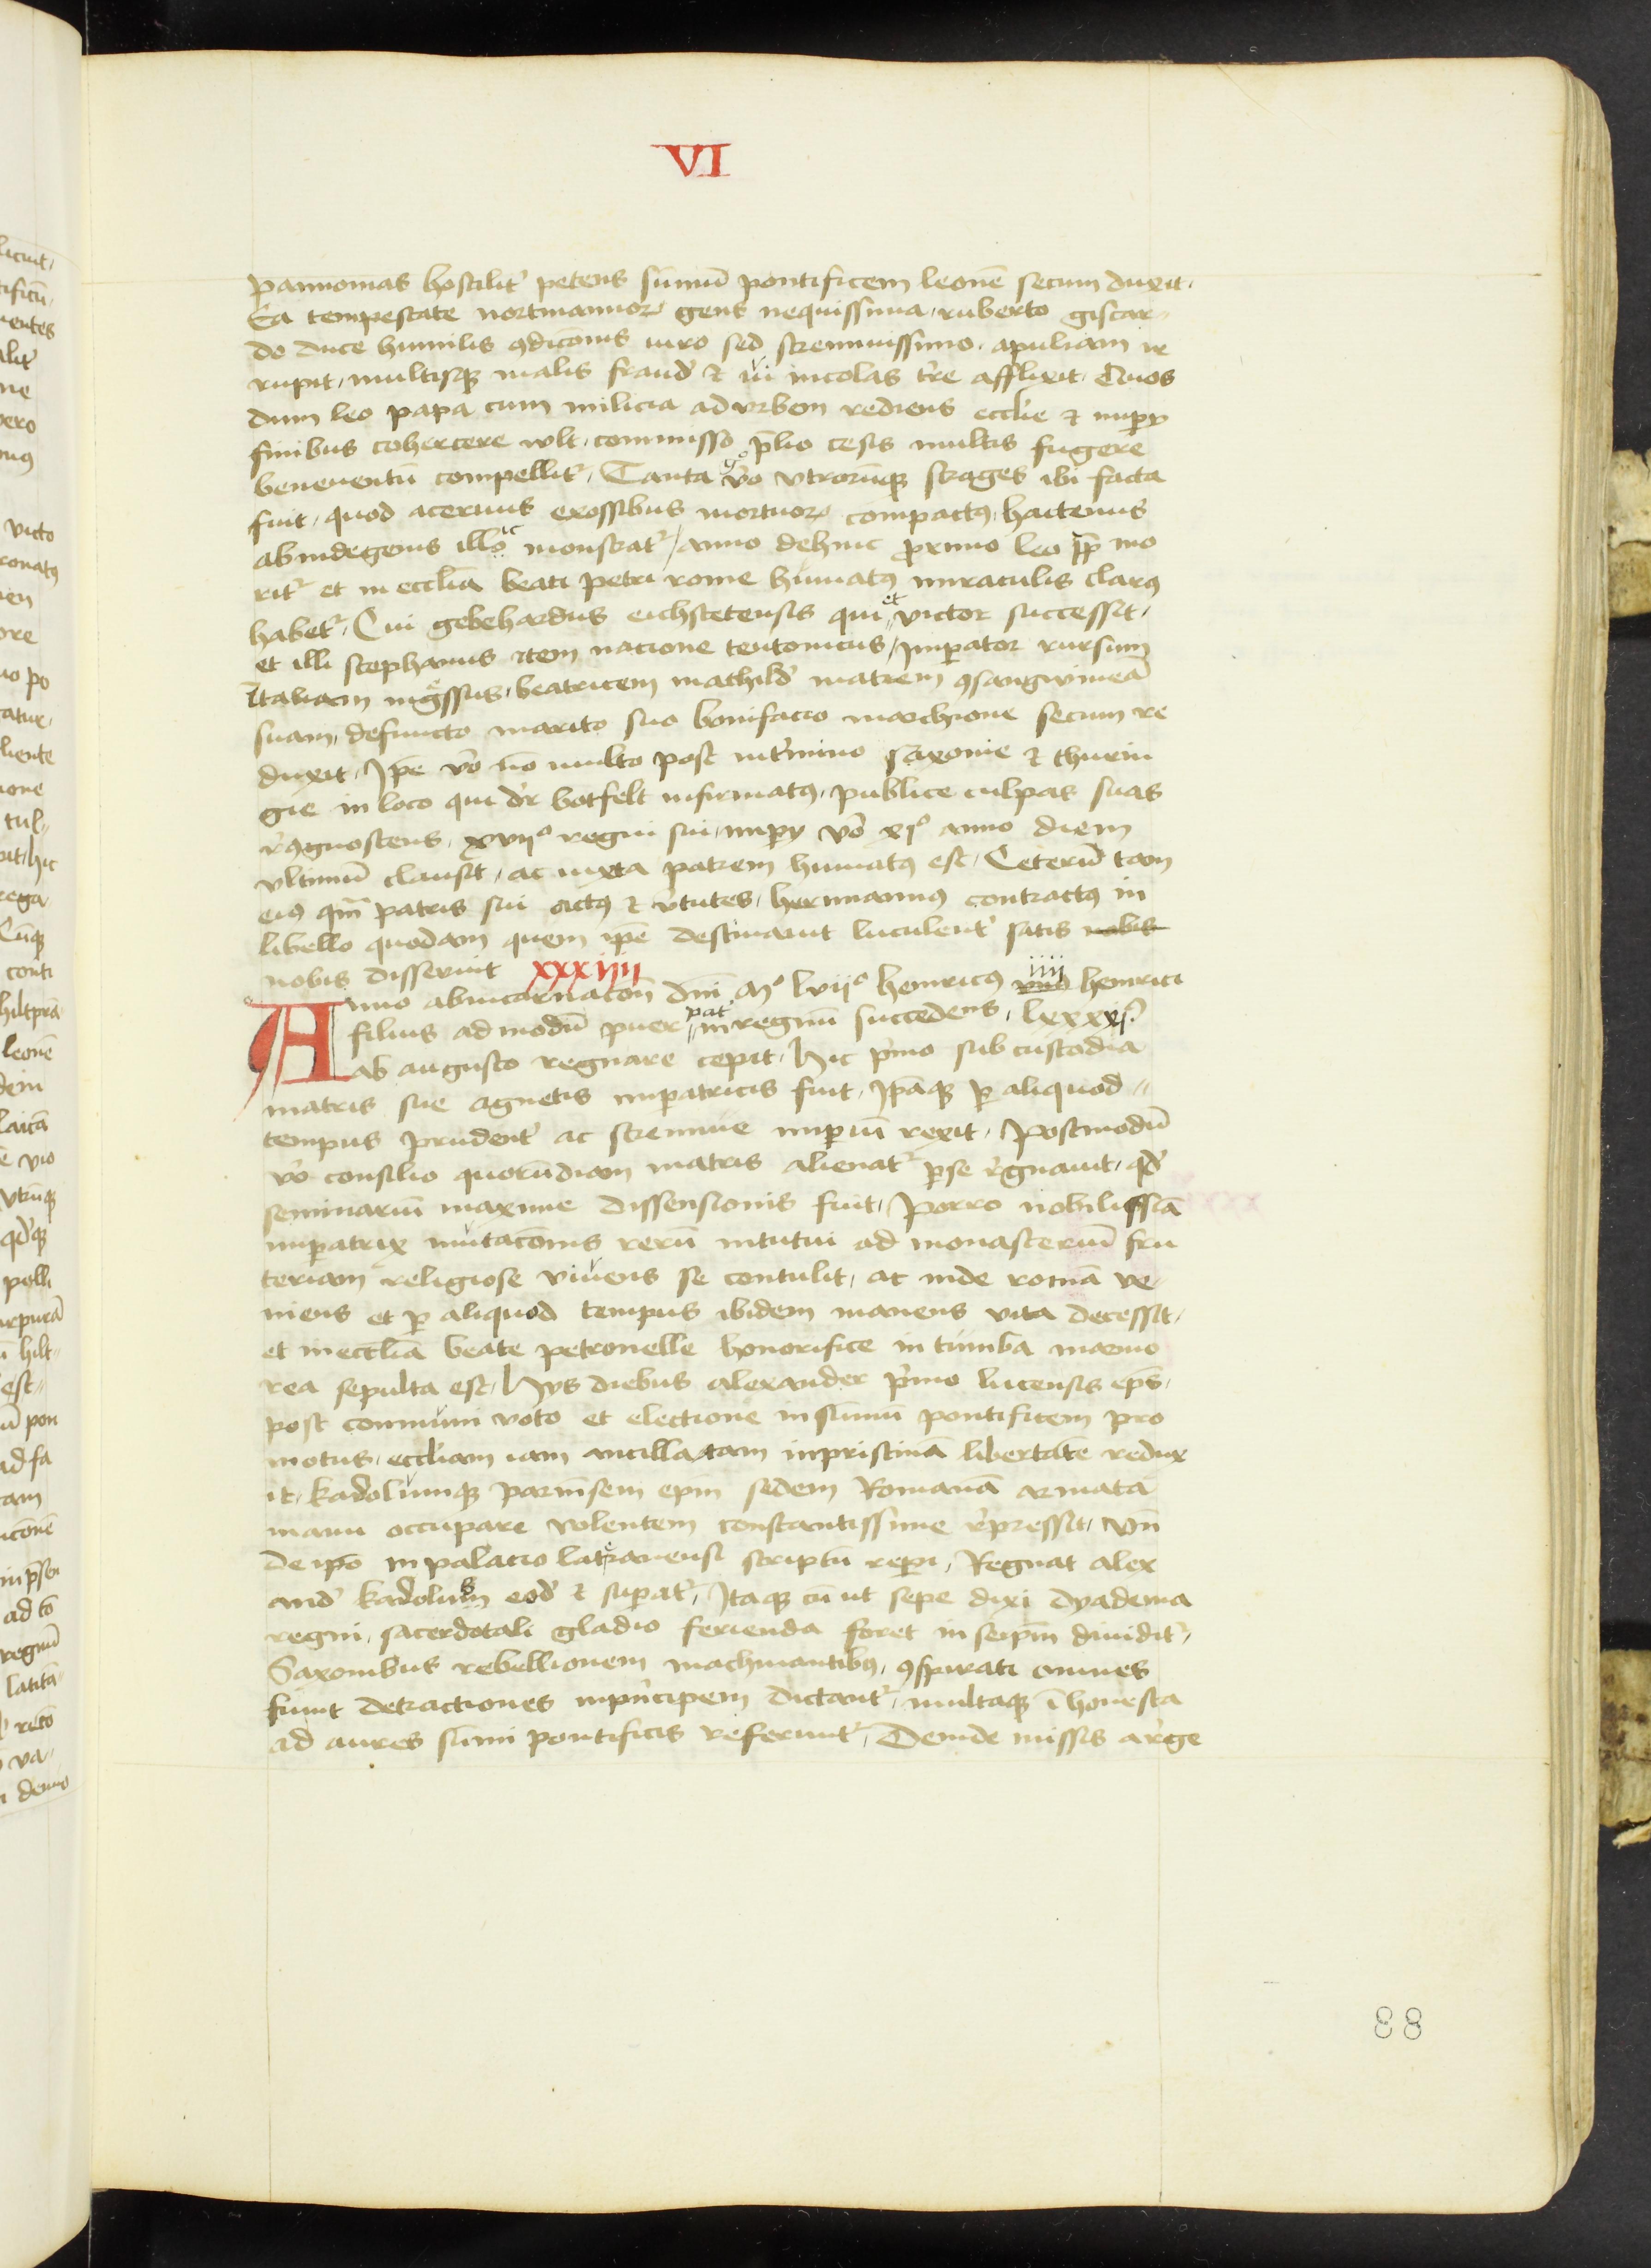 VI
pannonias hostilit᷑ petens sūmū pontificem leonē secum duxit.
Ea tempestate nortmannoꝝ gens nequissima, ruberto giscar
do duce humilis ꝯdicōnis uiro sed strennuissimo. apuliam ir
rupit, multisqꝫ malis fraudē ⁊ ui incolas t᷑re afflixit. Quos
dum leo papa cum milicia ad vrbem rediens ecclie ⁊ impery
finibus cohercere wlt, commisso p̄lio cesis multis fugere
beneuentū compellit᷑. Tanta vo vtrorūqꝫ strages ibi facta
fuit, quod aceruus exossibus mortuoꝝ compactꝰ, hactenus
abindegenis illic monstrat᷑, anno dehinc ꝓximo leo pp mo
rit᷑ et in eccliā beati petri rome humatꝰ miraculis clarꝰ
habet᷑. Cui gebehardus eichstetensis qui et victor successit,
et illi stephanus item nacione teutonicus, Imperator rursum
Italiam ingressus, beatricem mathild᷑ matrem ꝯsangwineā
suam, defuncto marito suo bonifacio marchione secum re
duxit. Ip̄e vo nō multo post int᷑mino saxonie ⁊ thurin
gie in loco qui dr botfelt infirmatꝰ, publice culpas suas
r᷑ꝯgnoscens, xvii⁰ regni sui, impery vo xi⁰ anno diem
vltimū clausit, ac iuxta patrem humatꝰ est. Ceterū tam
eiꝰ qm̄ patris sui actꝰ ⁊ v᷑tutes, hermannꝰ contractꝰ in
libello quodam quem ip̄e destinauit luculent᷑ satis nobis
nobis disseruit XXXIIII
Anno abincarnacōn dn̄i M⁰ lvii⁰ henricꝰ iiii henrici
filius ad modū puer pat in regnū succedens, lxxxxi⁰
ab augusto regnare cepit. Hic p᷑mo sub custodia
matris sue agnetis imperatricis fuit, Ipāqꝫ ꝑ aliquod
tempus prudent᷑ ac strennue imperiū rexit. Postmodū
vo consilio quorūdam matris alienat᷑ ꝑse r᷑gnauit, qd᷑
seminariū maxime dissensionis fuit, Porro nobilissīa
imperatrix mutacōnis rerū intutui ad monasteriū fru
teriam religiose viuens se contulit, ac inde romā ve
niens et ꝑ aliquod tempus ibidem manens vita decessit,
et in eccliā beate petronelle honorifice in tumba marmo
rea sepulta est. Hys diebus alexander p᷑mo lucensis ep̄s,
post communi voto et electione in sūmū pontificem pro
motus, eccliam iam ancillatam inpristinā libertatē redux
it, kadolumqꝫ parmēsem epm sedem Romanā armata
manu occupare volentem constantissime r᷑pressit, vn̄
de ipo in palacio lateranensi scriptū reperi, Regnat alex
and᷑ kadolum cad᷑ ⁊ superat᷑. Itaqꝫ cū ut sepe dixi dyadema
regni, sacerdotali gladio ferienda foret in seip̄m diuidit᷑,
Saxonibus rebellionem machinantibꝰ, ꝯspirati omnes
fiunt detractiones inp᷑ncipem dictant᷑, multaqꝫ īhonesta
ad aures sūmi pontificis referunt᷑. Deinde missis arge
88